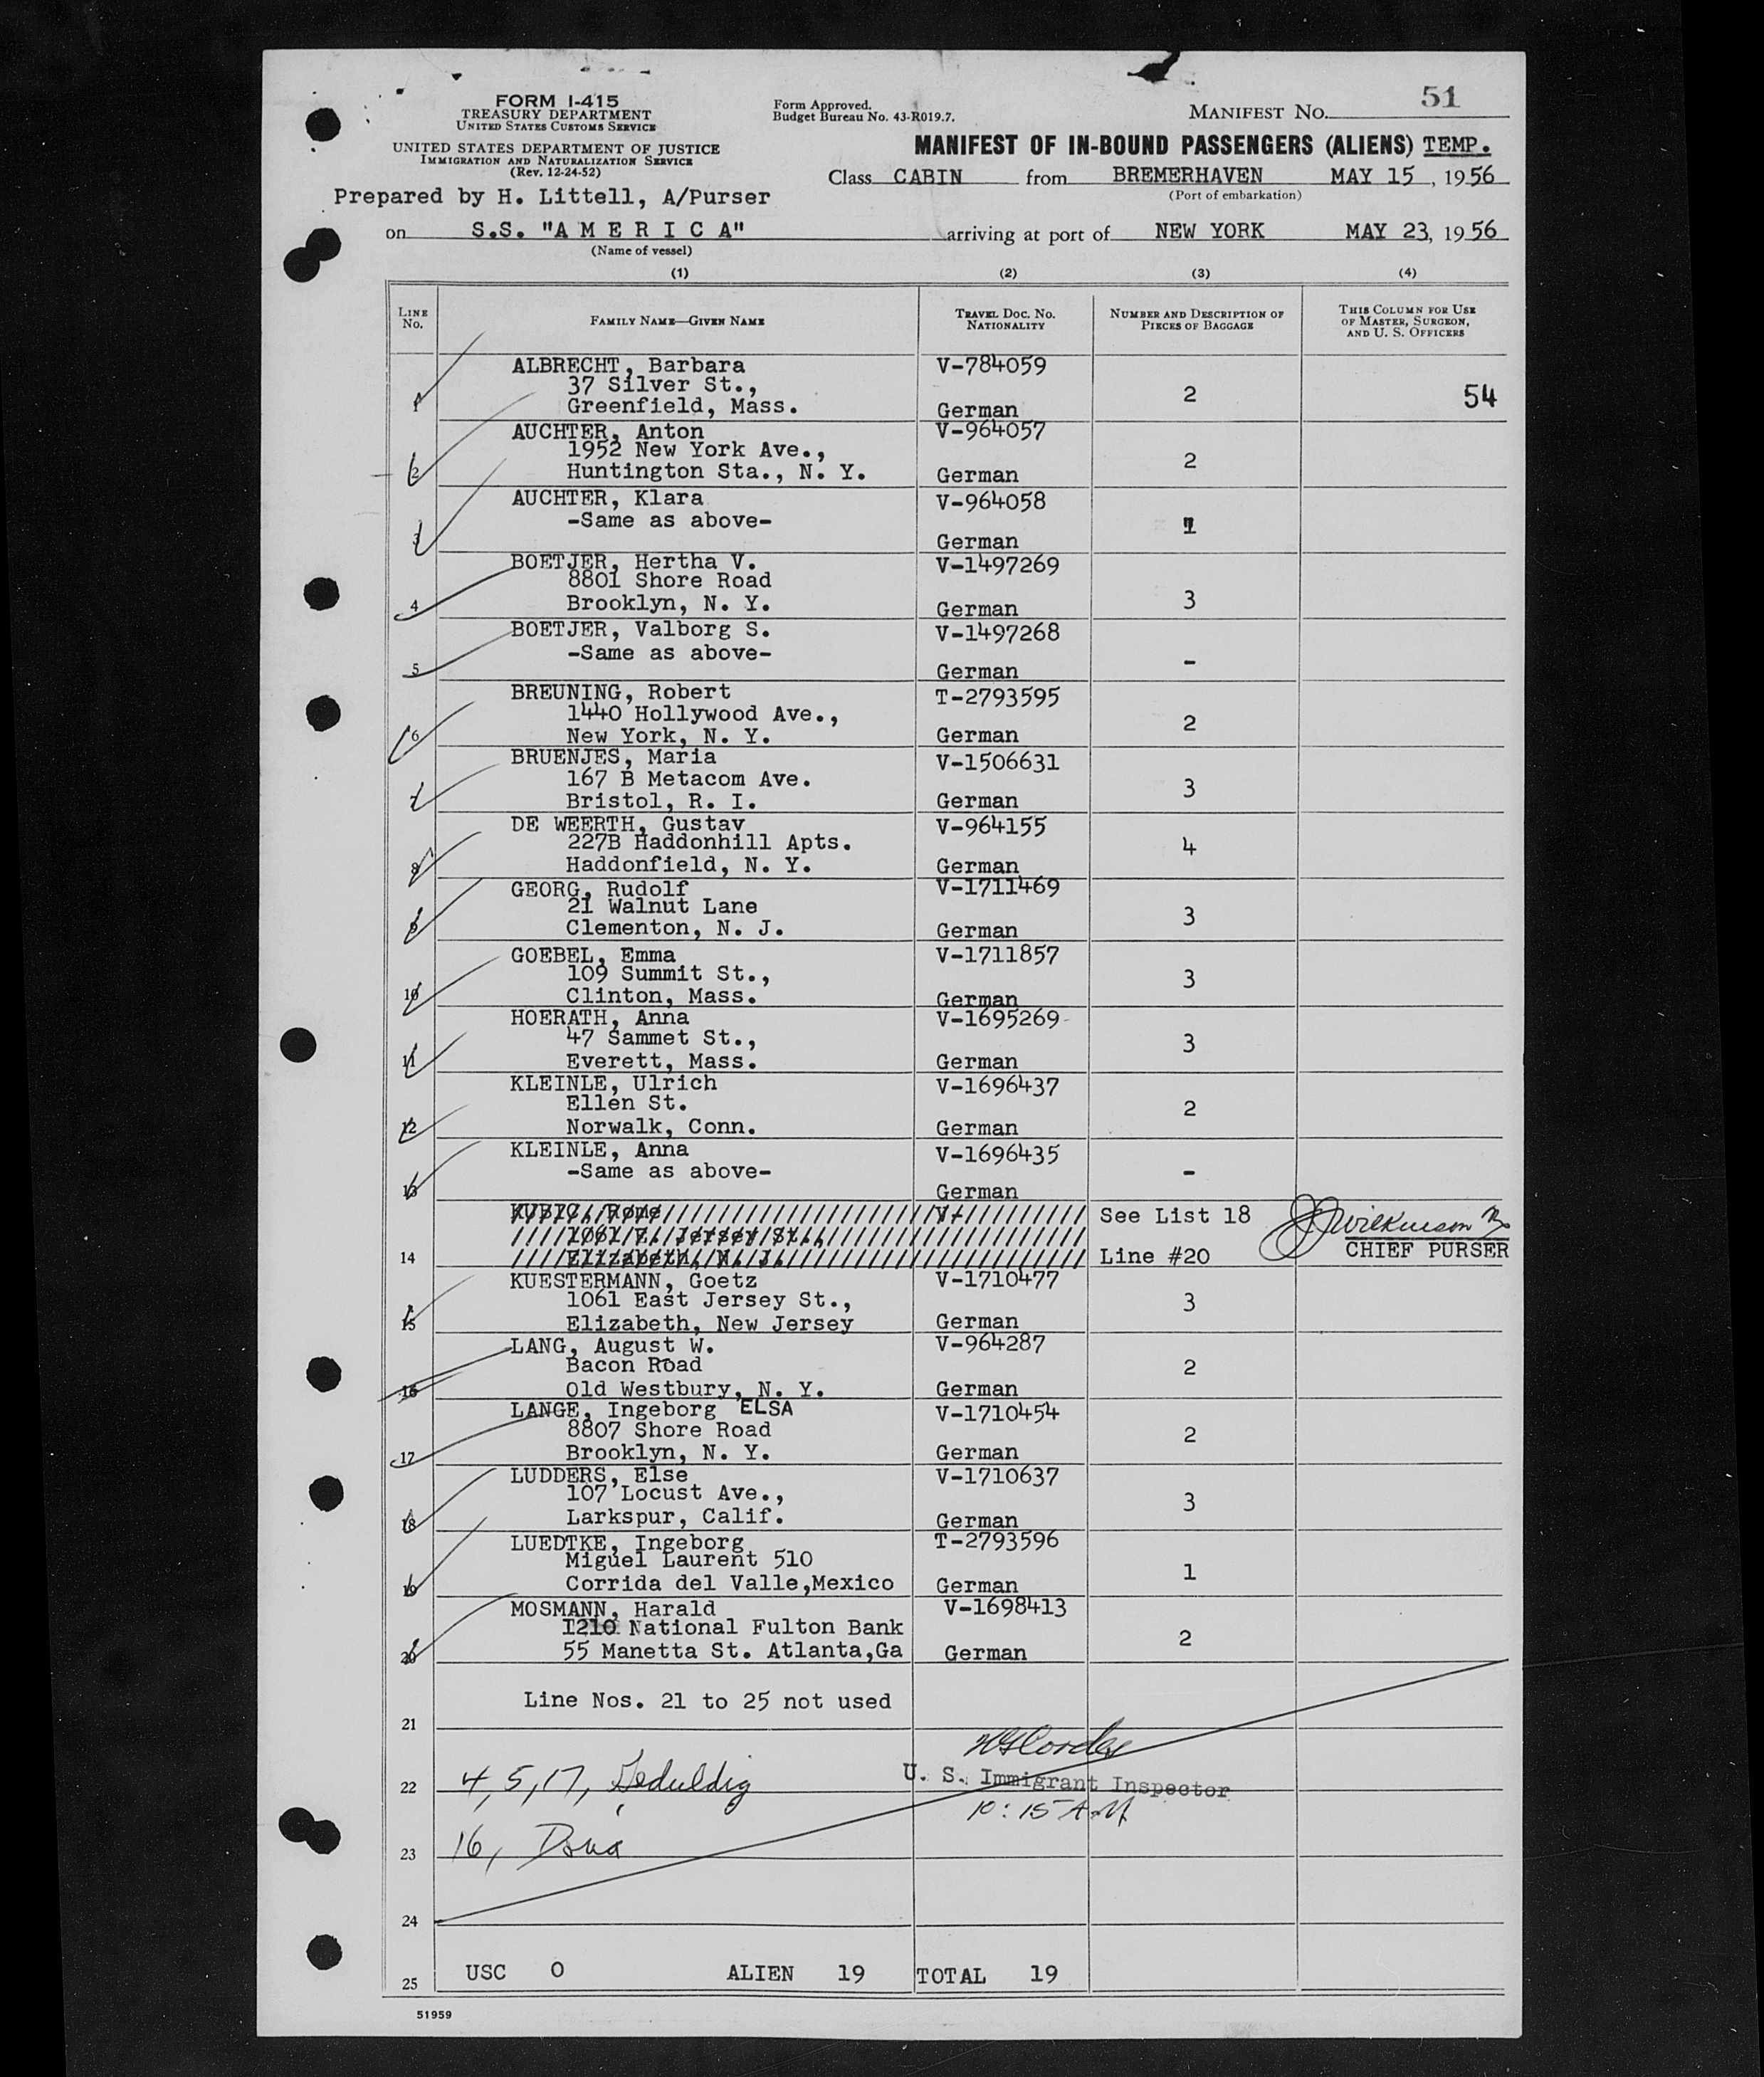 51
FORM I-415
TREASURY DEPARTMENT
UNITED STATES CUSTOMS SERVICE
UNITED STATES DEPARTMENT OF JUSTICE
IMMIGRATION AND NATURALIZATION SERVICE
(Rev. 12-24-52)
Form Approved.
Budget Bureau No. 43-R019.7.
MANIFEST NO.
MANIFEST OF IN-BOUND PASSENGERS (ALIENS) TEMP.
Class CABIN from BREMERHAVEN MAY 15, 1956
(Port of embarkation)
Prepared by H. Littell, A/Purser
on S.S. "A M E R I C A" arriving at port of NEW YORK MAY 23, 1956
(Name of vessel)
(1) (2) (3) (4)
LINE No. FAMILY NAME—GIVEN NAME TRAVEL DOC. NO. NATIONALITY NUMBER AND DESCRIPTION OF PIECES OF BAGGAGE THIS COLUMN FOR USE OF MASTER, SURGEON, AND U. S. OFFICERS
ALBRECHT, Barbara V-784059
37 Silver St.,
1 Greenfield, Mass. German 2 54
AUCHTER, Anton V-964057
1952 New York Ave.,
2 Huntington Sta., N. Y. German 2
AUCHTER, Klara V-964058
-Same as above-
3 German 1
BOETJER, Hertha V. V-1497269
8801 Shore Road
4 Brooklyn, N. Y. German 3
BOETJER, Valborg S. V-1497268
-Same as above-
5 German -
BREUNING, Robert T-2793595
1440 Hollywood Ave.,
6 New York, N. Y. German 2
BRUENJES, Maria V-1506631
167 B Metacom Ave.
7 Bristol, R. I. German 3
DE WEERTH, Gustav V-964155
227B Haddonhill Apts.
8 Haddonfield, N. Y. German 4
GEORG, Rudolf V-1711469
21 Walnut Lane
9 Clementon, N. J. German 3
GOEBEL, Emma V-1711857
109 Summit St.,
10 Clinton, Mass. German 3
HOERATH, Anna V-1695269
47 Sammet St.,
11 Everett, Mass. German 3
KLEINLE, Ulrich V-1696437
Ellen St.
12 Norwalk, Conn. German 2
KLEINLE, Anna V-1696435
-Same as above-
13 German -
KUBIC, Rome V- See List 18 JJWilkinson
1061 E. Jersey St.,
14 Elizabeth, N. J. Line #20 CHIEF PURSER
KUESTERMANN, Goetz V-1710477
1061 East Jersey St.,
15 Elizabeth, New Jersey German 3
LANG, August W. V-964287
Bacon Road
16 Old Westbury, N. Y. German 2
LANGE, Ingeborg ELSA V-1710454
8807 Shore Road
17 Brooklyn, N. Y. German 2
LUDDERS, Else V-1710637
107 Locust Ave.,
18 Larkspur, Calif. German 3
LUEDTKE, Ingeborg T-2793596
Miguel Laurent 510
19 Corrida del Valle,Mexico German 1
MOSMANN, Harald V-1698413
1210 National Fulton Bank
20 55 Manetta St. Atlanta,Ga German 2
Line Nos. 21 to 25 not used
21
22 4, 5, 17, Geduldig U. S. Immigrant Inspector
10:15 AM
23 16,
24
25 USC 0 ALIEN 19 TOTAL 19
51959